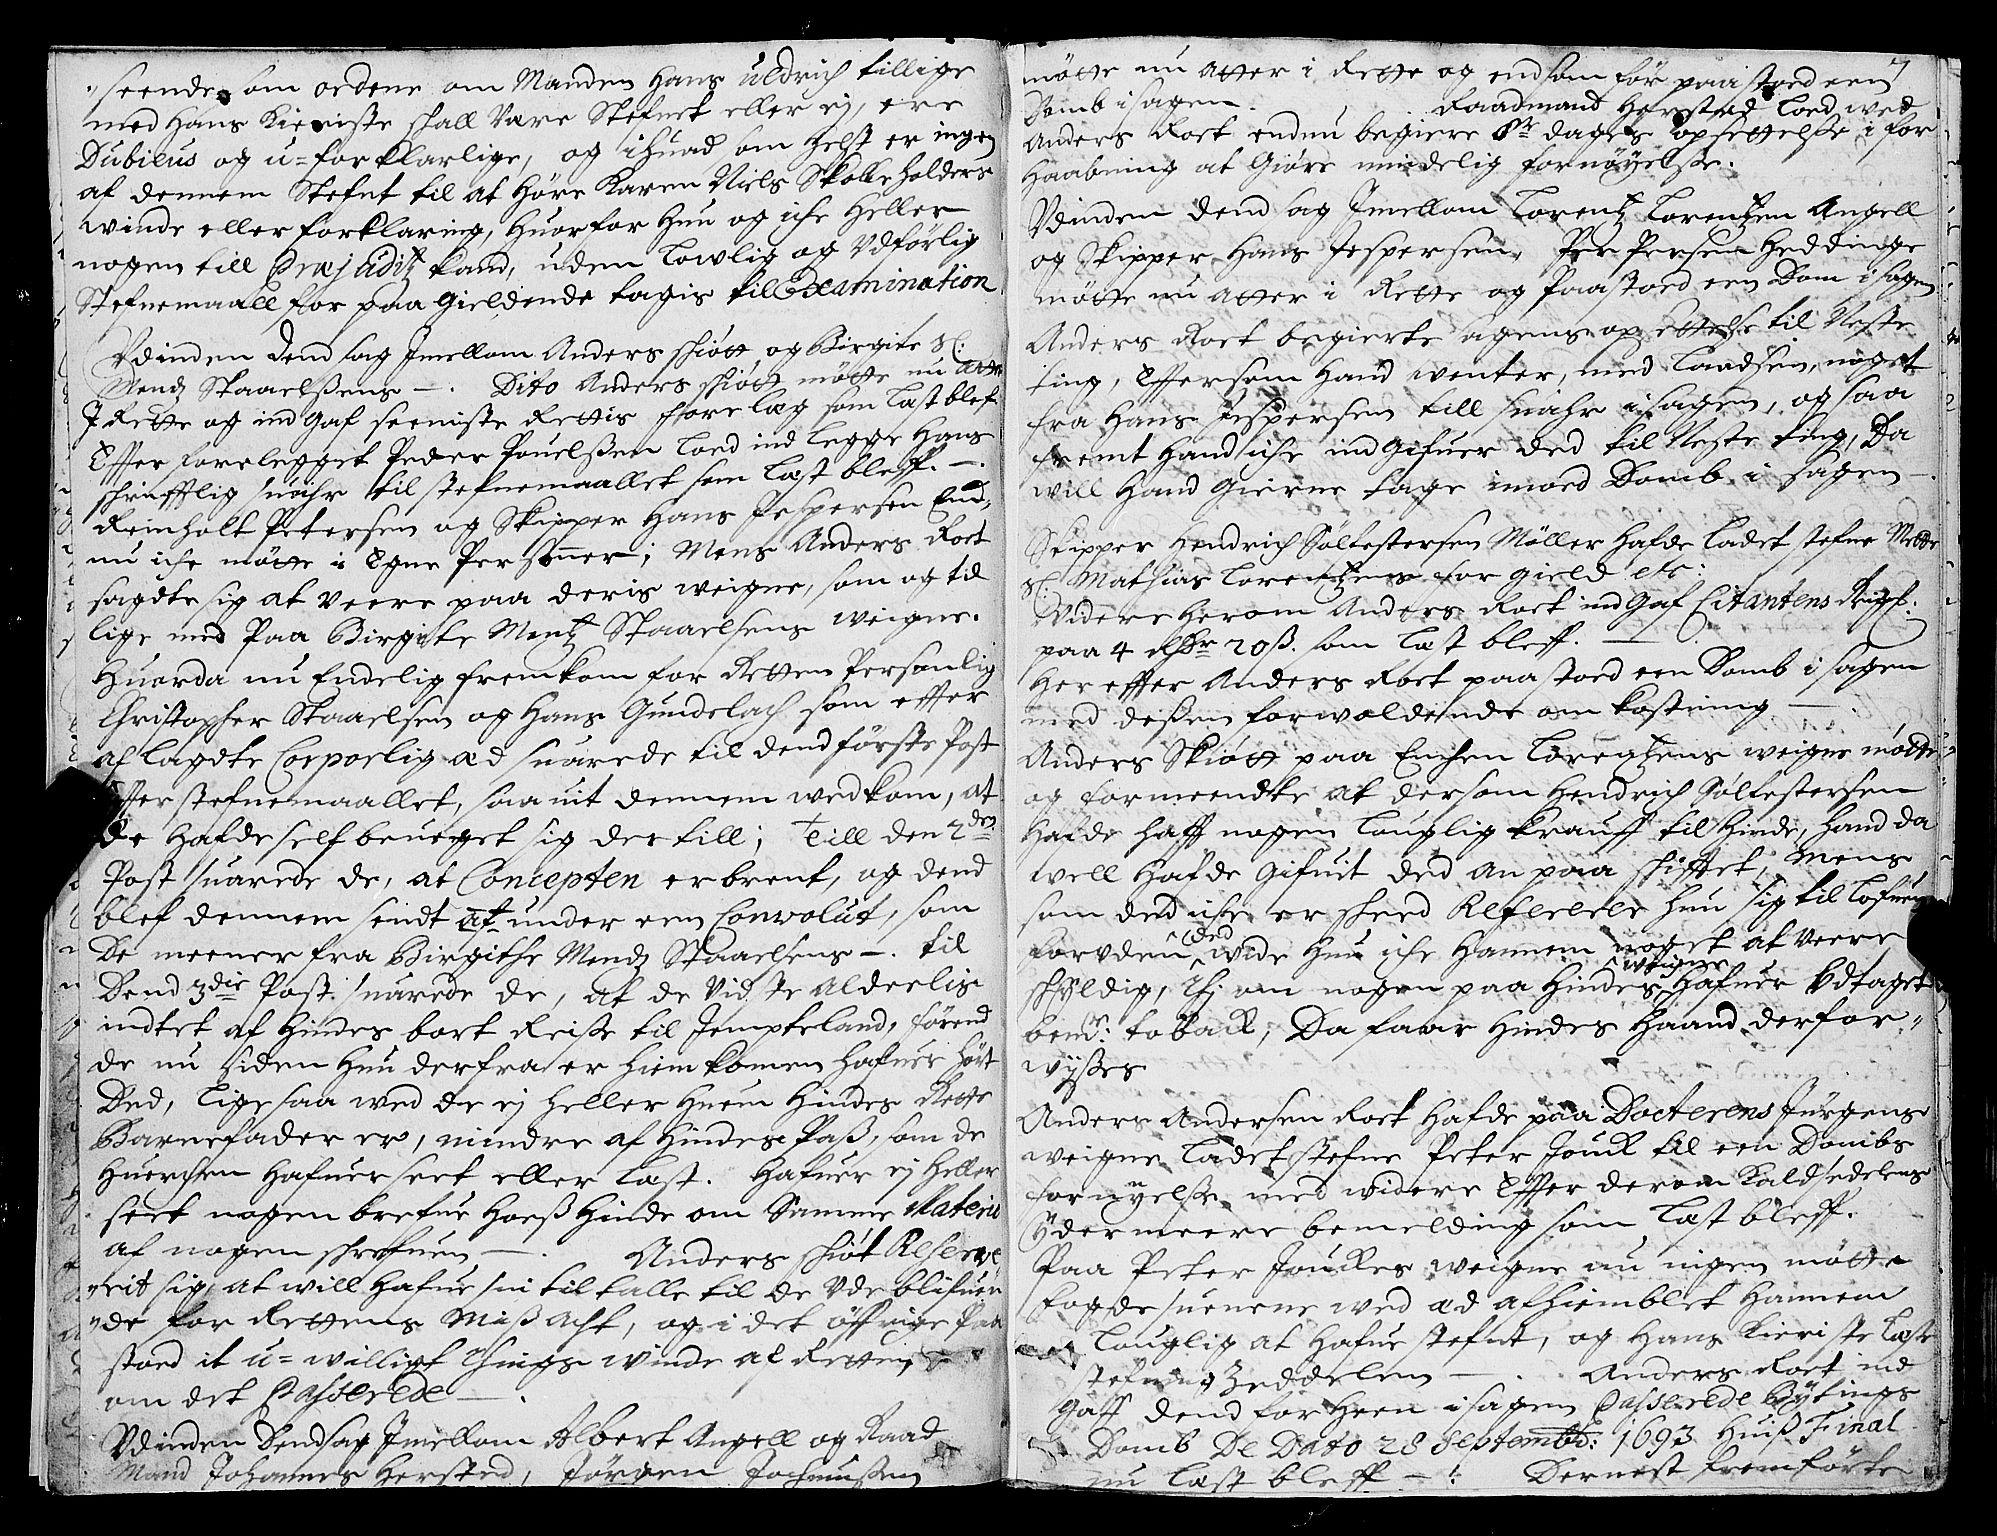 seende som ordene om Manden Hans Uldrich tillige
med Hans Kieriste skall Være Stefnet eller ej, ere
Dubieus og u=forklarlige, og ihuad som helst er ingen
af dennem Stefnt til at höre Karen Niels Skolleholders
winde eller forklaring, Huorfor Hun og iche Heller
nogen till Præjuditz kand, uden lowlig og Udförlig
Stefnemaall for paa gieldende tagis til Examination
Udinden dend sag Jmellom Anders skiött og Birgite Sl:
Mentz Staaelßens —. Dito Anders skiött mötte nu atter
J Rette og ind Gaf seeniste Rettis forelæg som læst blef
Effter forelegget Peder Pouelßen loed ind legge Hans
skrifftlig suahr til stefnemaallet som læst bleff. —.
Reinholt Petersen og Skipper Hans Jespersen End,
nu iche mötte i Egne Personner; Mens Anders Roet
sagdte sig at veere paa deris weigne, som og til
lige med Paa Birgite Mentz Staaelsens weigne.
Huorda nu Endelig fremkom for Retten Personlig
Christopher Staaelsen og Hans Gundelach som effter
aflagdte Corporlig æd suarede til dend förste Post
Effter stefnemaallet, saauit dennem wedkom, at
de Hafde self beueget sig der till; Till den 2den
Post suarede de, at Concepten er brent, og dend
blef dennem sendt under een Convolut, som
De meener fra Birgithe Mentz Staaelsens —. til
Dend 3die Post suarede de, at de Vidste alderlis
indtet af Hindes bort Reiße til Jempteland, förend
de nu siden Hun derfra er hiem kommen Hafuer hört
Ded, ligesaa wed de ej heller Huem Hindes Rette
Barnefader er, mindre af Hindes Paß, som de
Huercken Hafuer seet eller læst. Hafuer ej heller
seet nogen brefue Hoeß Hinde om Samme Materie
af nogen skrefuen —. Anders skiöt Reserve
rit sig, at will Hafue sin tiltalle til de Udeblifuen
de for Rettens Mißacht, og i det öffrige Paa
stoed it u=willigt Tings winde af Retten,
om det Passerede —.
Udinden Dend sag Jmellom Albert Angell og Raad
Mand Johannes Hersted, Jörgen Jochumßen
7
mötte nu atter i Rette og end som för paastoed een
Domb i sagen. Raadmand Hersted loed wed
Anders Roet endnu begiere 8te dages opsettelße i for
haabning at Giöre mindelig fornöyelße.
Udinden dend sag Jmellom Lorentz Lorentzen Angell
og Skipper Hans Jespersen, Per Persen Heddinge
mötte nu atter i Rette og Paastoed een Dom i sagen
Anders Roet begierte sagens opsettelse til Neste
ting, Effersom Hand wenter, med laadsen, noget
fra Hans Jespersen till suahr i sagen, og saa
fremt Hand iche ind Gifuer ded til Neste ting, Da
will Hand Gierne tage imoed Domb i sagen —.
Skipper Hendrich Söltestersen Möller Hafde ladet stefne Mette
Sl: Mathias Lorentzens for gield etc:
Videre Herom Anders Roet ind Gaf Citantens
paa 4 Rdr 20ß. som læst bleff. —
Her effter Anders Roet paastoed een Domb i sagen
med deßen forwoldende omkostning —.
Anders Skiött paa Enchen Lorentzens weigne mötte
og formeendte at dersom Hendrich Söltestersen
Hafde hafft nogen louglig krauff til Hinde, Hand da
well Hafde Gifuit ded an paa skiffted, Mens
som ded iche er skeed Refererer Hun sig til lofuen
foruden ded wide Hun iche Hannem noget at veere
skyldig, om nogen paa Hindes weigne Hafuer Udtaget
bemte: toback, Da faar Hindes Haand derfor
wyßes
Anders Andersen Roet Hafde paa Docterens Jürgens
weigne ladet stefne Peter Jouck til een Dombs
fornyelße med widere Effter derom Kaldsedelens
ÿdermeere bemelding som læst bleff.
Paa Peter Jouckes weigne nu ingen mötte
fogdesuenene wed æd afhiemblet Hannem
louglig at Hafue stefnt, og Hans Kieriste læste
stefning Zeddelen —. Anders Roet ind
Gaff dend forHeen i sagen Passerede Bÿtings
Domb De Dato 28 Septembr: 1693 Huiß Final
nu læst bleff —. Dernest fremförte